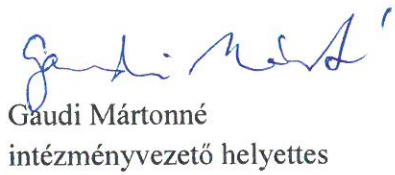 Gaudi Márt
Gaudi Mártonné
intézményvezető helyettes